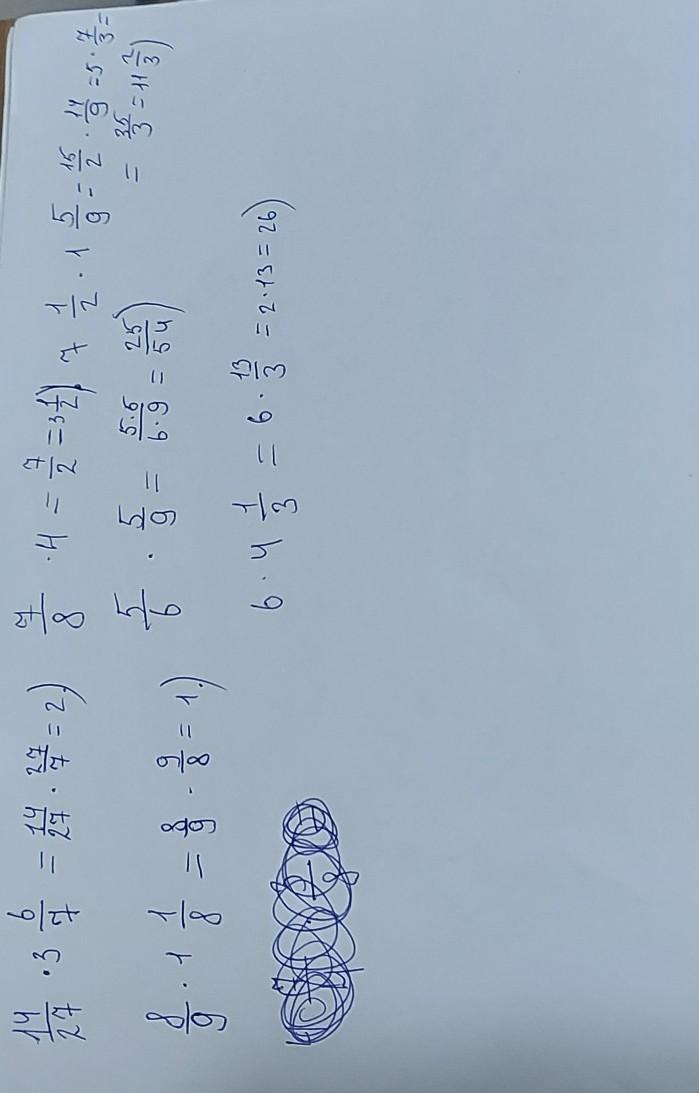 14/27 · 3 6/7 = 14/27 · 27/7 = 2)
7/8 · 4 = 7/2 = 3 1/2)
7 1/2 · 1 5/9 = 15/2 · 14/9 = 5 · 7/3 =
= 35/3 = 11 2/3)
8/9 · 1 1/8 = 8/9 · 9/8 = 1)
5/6 · 5/9 = 5·5/6·9 = 25/54)
6 · 4 1/3 = 6 · 13/3 = 2·13 = 26)